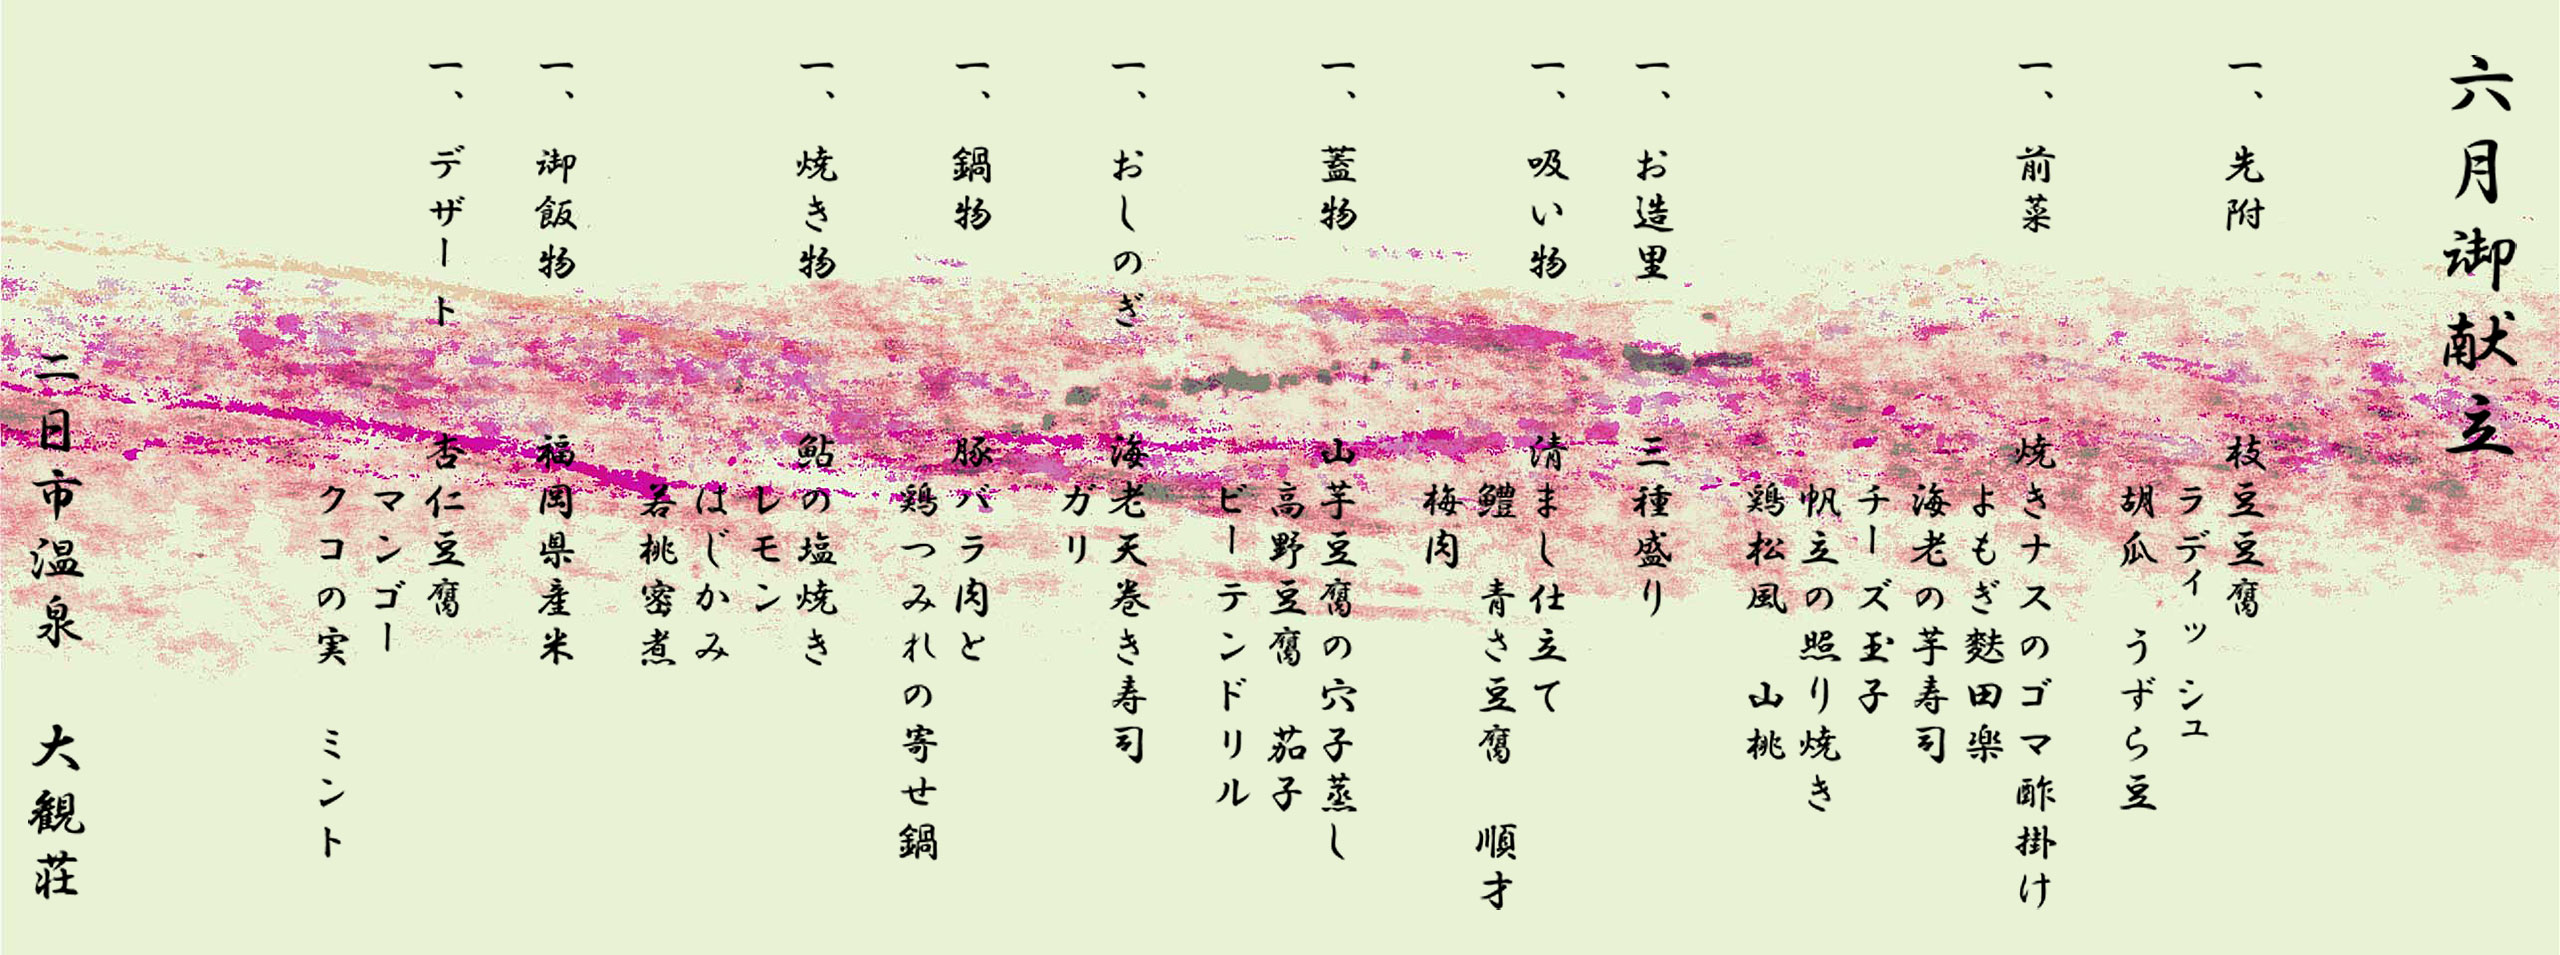 六月御献立
一、先附
枝豆豆腐
ラディッシュ
胡瓜 うずら豆
一、前菜
焼きナスのゴマ酢掛け
よもぎ麩田楽
海老の芋寿司
チーズ玉子
帆立の照り焼き
鶏松風 山桃
一、お造里
三種盛り
一、吸い物
清まし仕立て
鱧 青さ豆腐 順才
梅肉
一、蓋物
山芋豆腐の穴子蒸し
高野豆腐 茄子
ビーテンドリル
一、おしのぎ
海老天巻き寿司
ガリ
一、鍋物
豚バラ肉と
鶏つみれの寄せ鍋
一、焼き物
鮎の塩焼き
レモン
はじかみ
若桃密煮
一、御飯物
福岡県産米
一、デザート
杏仁豆腐
マンゴー
クコの実 ミント
二日市温泉 大観荘